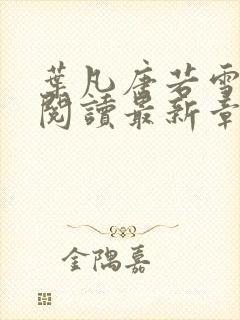 葉凡唐若雪
閱讀最新章
金隅嘉